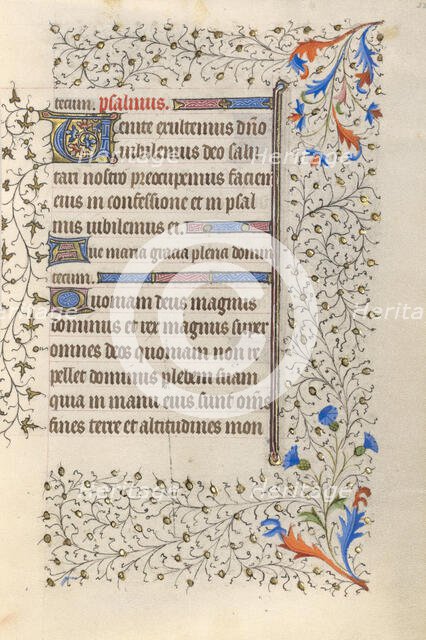 tecum. psalmus.
Venite exultemus dño
iubilemus deo salu
tari nostro preocupemus faciem
eius in confessione et in psal
mis iubilemus ei.
Aue maria gracia plena domin
tecum.
Quoniam deus magnus
dominus et rex magnus super
omnes deos quoniam non re
pellet dominus plebem suam
quia in manu eius sunt omẽs
fines terre et altitudines mon
Heritage
Heritage
Heritage
Heritage
Heritage
Heritage